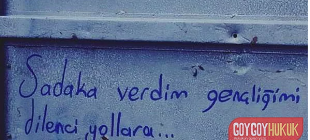 Sadaka verdim gençliğimi
dilenci yollara...
GOYGOYHUKUK